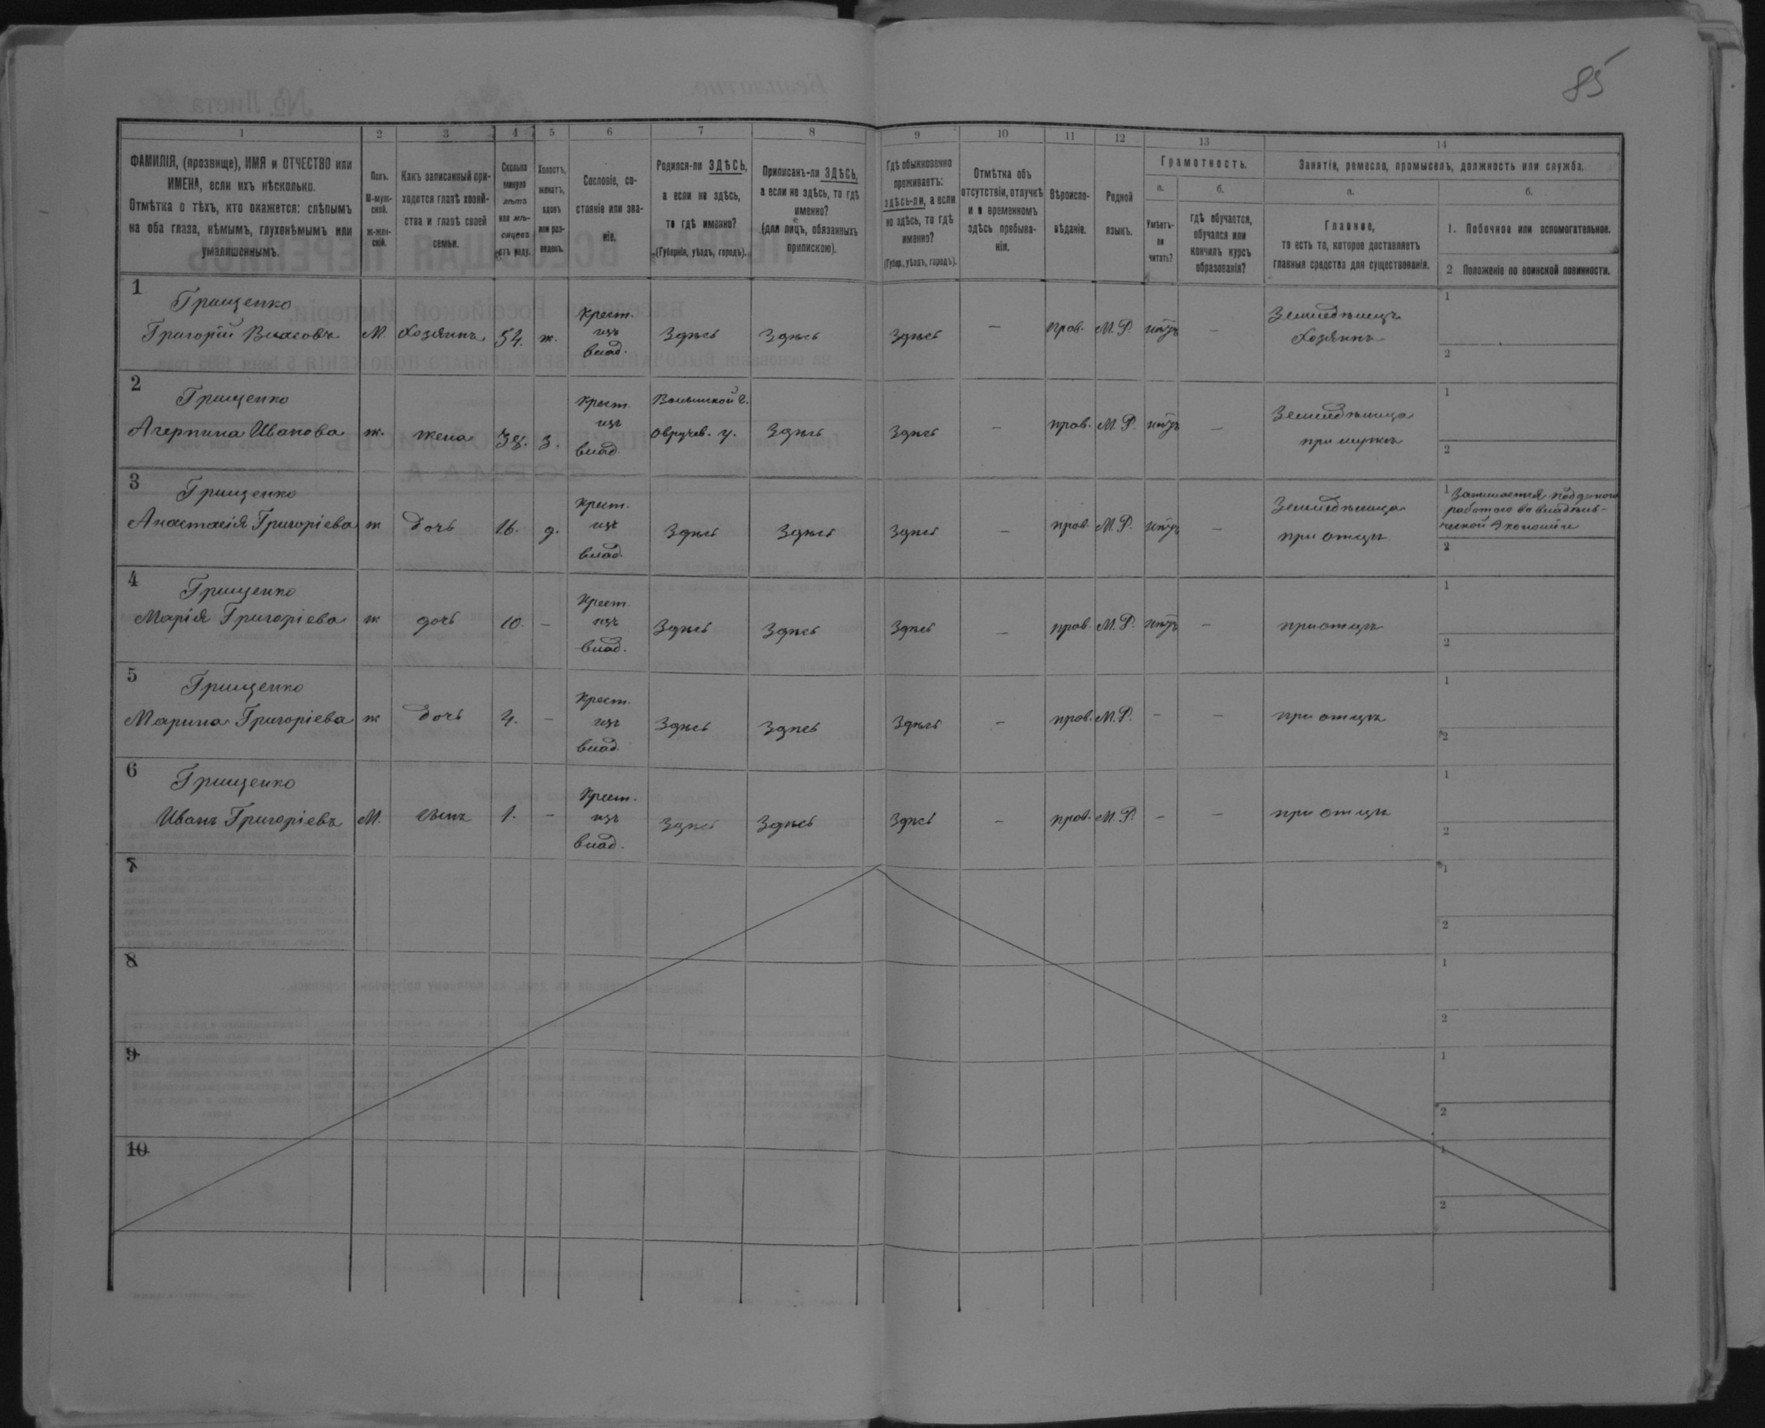 85
1 2 3 4 5 6 7 8 9 10 11 12 13 14
ФАМИЛІЯ, (прозвище), ИМЯ и ОТЧЕСТВО или
ИМЕНА, если ихъ нѣсколько.
Отмѣтка о тѣхъ, кто окажется: слѣпымъ
на оба глаза, нѣмымъ, глухонѣмымъ или
умалишеннымъ.
Полъ.
М-муж-
ской.
Ж-жен-
скій.
Какъ записанный при-
ходится главѣ хозяй-
ства и главѣ своей
семьи.
Сколько
минуло
лѣтъ
или мѣ-
сяцевъ
отъ роду.
Холостъ,
женатъ,
вдовъ
или раз-
веденъ.
Сословіе, со-
стояніе или зва-
ніе.
Родился-ли ЗДѢСЬ,
а если не здѣсь,
то гдѣ именно?
(Губернія, уѣздъ, городъ).
Приписанъ-ли ЗДѢСЬ,
а если не здѣсь, то гдѣ
именно?
(для лицъ, обязанныхъ
припискою).
Гдѣ обыкновенно
проживаетъ:
здѣсь-ли, а если
не здѣсь, то гдѣ
именно?
(Губер., уѣздъ, городъ).
Отмѣтка объ
отсутствіи, отлучкѣ
и о временномъ
здѣсь пребыва-
ніи.
Вѣроиспо-
вѣданіе.
Родной
языкъ.
Грамотность.
а.
Умѣетъ-
ли
читать?
б.
гдѣ обучается,
обучался или
кончилъ курсъ
образованія?
Занятія, ремесло, промыселъ, должность или служба.
а.
Главное,
то есть то, которое доставляетъ
главныя средства для существованія.
б.
1. Побочное или вспомогательное.
2 Положеніе по воинской повинности.
1 Грищенко
Григорій Власовъ М. Хозяинъ 54. ж. Крест. изъ влад. Здѣсь Здѣсь Здѣсь — прав. М.Р. нѣтъ — Земледѣлецъ Хозяинъ 1 2
2 Грищенко
Агерпина Иванова ж. жена 38. з. Крест. изъ влад. Волынской г. Овручев. у. Здѣсь Здѣсь — прав. М.Р. нѣтъ — Земледѣлица при мужѣ 1 2
3 Грищенко
Анастасія Григоріева ж дочь 16. д. Крест. изъ влад. Здѣсь Здѣсь Здѣсь — прав. М.Р. нѣтъ — Земледѣлица при отцѣ 1 Занимается поденною работою во владѣль-ческой экономіи 2
4 Грищенко
Марія Григоріева ж дочь 10. — Крест. изъ влад. Здѣсь Здѣсь Здѣсь — прав. М.Р. нѣтъ — при отцѣ 1 2
5 Грищенко
Марина Григоріева ж дочь 4. — Крест. изъ влад. Здѣсь Здѣсь Здѣсь — прав. М.Р. — — при отцѣ 1 2
6 Грищенко
Иванъ Григоріевъ М. сынъ 1. — Крест. изъ влад. Здѣсь Здѣсь Здѣсь — прав. М.Р. — — при отцѣ 1 2
7 1 2
8 1 2
9 1 2
10 1 2